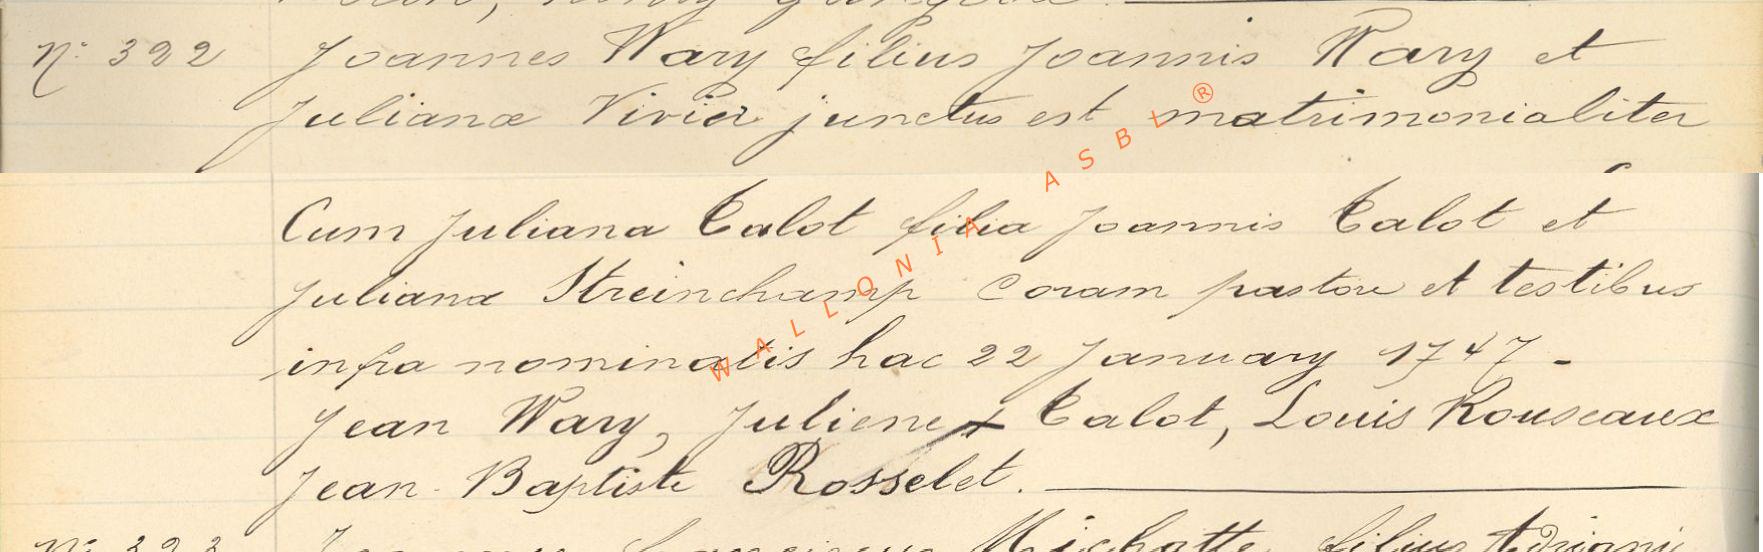 N° 322 Joannes Wary filius Joannis Wary et
Julianæ Vivier junctus est matrimonialiter
Cum Juliana Calot filia Joannis Calot et
Julianæ Streinchamp Coram pastore et testibus
infra nominatis hac 22 January 1747 -
Jean Wary, Juliene + Calot, Louis Rouseaux
Jean-Baptiste Rosselet.
N° 323 Michotte filius Adriani
WALLONIA ASBL ®